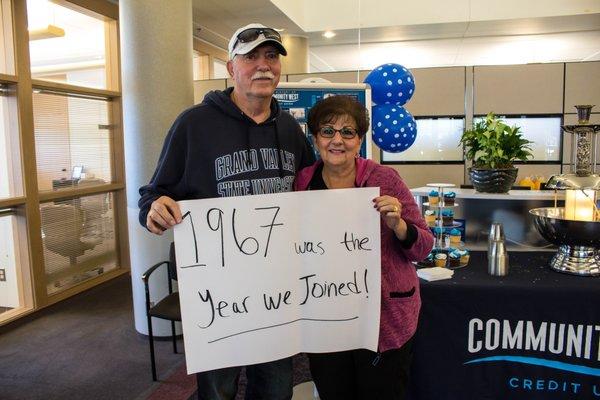 COMMUNITY WEST
GRAND VALLEY
STATE
1967 was the
Year we Joined!
COMMUNITY
CREDIT